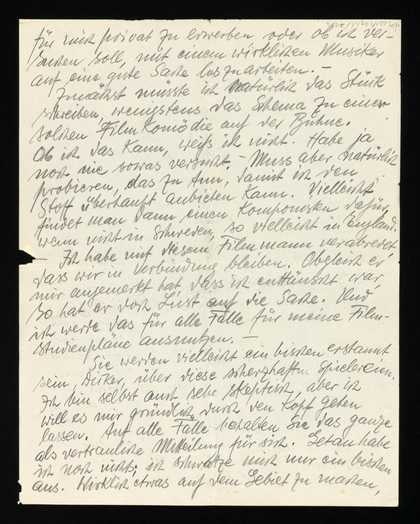 für mich privat zu erwerben oder ob ich ver-
suchen soll, mit einem wirklichen Musiker
auf eine gute Sache loszuarbeiten. —
Zunächst müsste ich natürlich das Stück
schreiben, wenigstens das Schema zu einer
solchen Filmkomödie auf der Bühne.
Ob ich das kann, weiß ich nicht. Habe ja
noch nie sowas versucht. – Muss aber natürlich
probieren, das zu tun, damit ich den
Stoff überhaupt anbieten kann. Vielleicht
findet man dann einen Komponisten dafür,
wenn nicht in Schweden, so vielleicht in England.
– Ich habe mit diesem Filmmann verabredet
dass wir in Verbindung bleiben. Obgleich er
mir angemerkt hat, dass ich enttäuscht war,
so hat er doch Lust auf die Sache. Und
ich werde das für alle Fälle für meine Film-
studienpläne ausnutzen. —
Sie werden vielleicht ein bisschen erstaunt
sein, über diese scherzhaften Spielereien.
Ich bin selbst auch sehr skeptisch, aber ich
will es mir gründlich durch den Kopf gehen
lassen. Auf alle Fälle behalten Sie das ganze
als vertrauliche Mitteilung für sich. Getan habe
ich noch nichts; ich schwatze mich nur ein bisschen
aus. Wirklich etwas auf dem Gebiet zu machen,